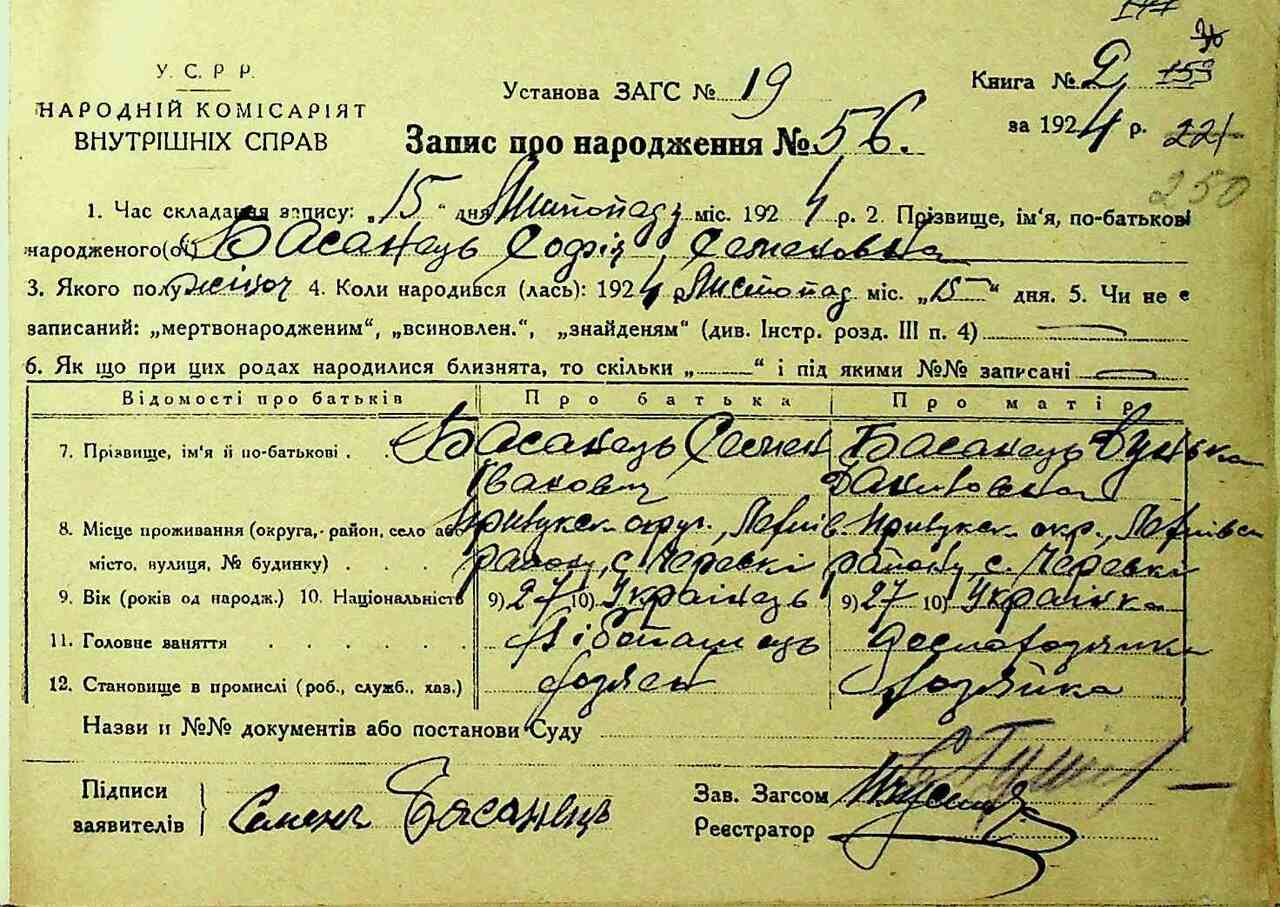 177
У. С. Р Р.
НАРОДНІЙ КОМІСАРІЯТ
ВНУТРІШНІХ СПРАВ
Установа ЗАГС № 19
Книга № 2 153
за 1924 р. 221
250
Запис про народження № 56.
1. Час складання запису: „15" дня Листопаду міс. 1924 р. 2. Прізвище, ім'я, по-батькові
народженого(ої) Басанець Софія Семеновна
3. Якого полу жіноч 4. Коли народився (лась): 1924 Листопад міс. „15" дня. 5. Чи не є
записаний: „мертвонародженим", „всиновлен.", „знайденям" (див. Інстр. розд. III п. 4)
6. Як що при цих родах народилися близнята, то скільки „ " і під якими №№ записані
Відомості про батьків Про батька Про матір
7. Прізвище, ім'я й по-батькові . . Басанець Семен Басанець Дунька
Іванович Даниловна
8. Місце проживання (округа, район, село або Прилукск округ., Прилукск окр.,
місто, вулиця, № будинку) . . . . району, с. Черевкі району, с. Черевкі
9. Вік (років од народж.) 10. Національність 9) 27 10) Українець 9) 27 10) Українка
11. Головне заняття . . . . . . Хліборобець домохозяйка
12. Становище в промислі (роб., служб., хаз.) хозяїн хозяйка
Назви и №№ документів або постанови Суду
Підписи
заявителів
Семенъ Басанець
Зав. Загсом
Реєстратор